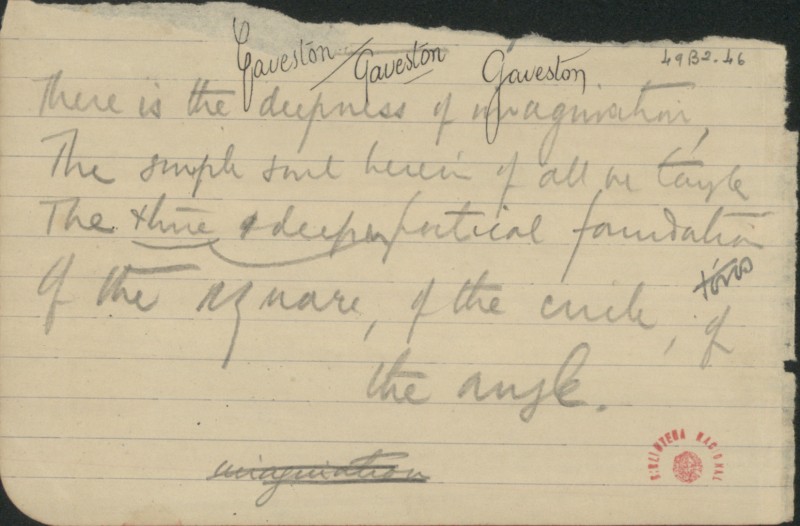 Gaveston / Gaveston Gaveston 49B2-46
There is the deepness of imagination,
The simple soul herein of all we
The deeper poetical foundation
of the square, of the circle, of
the angle.
imagination
BIBLIOTECA NACIONAL